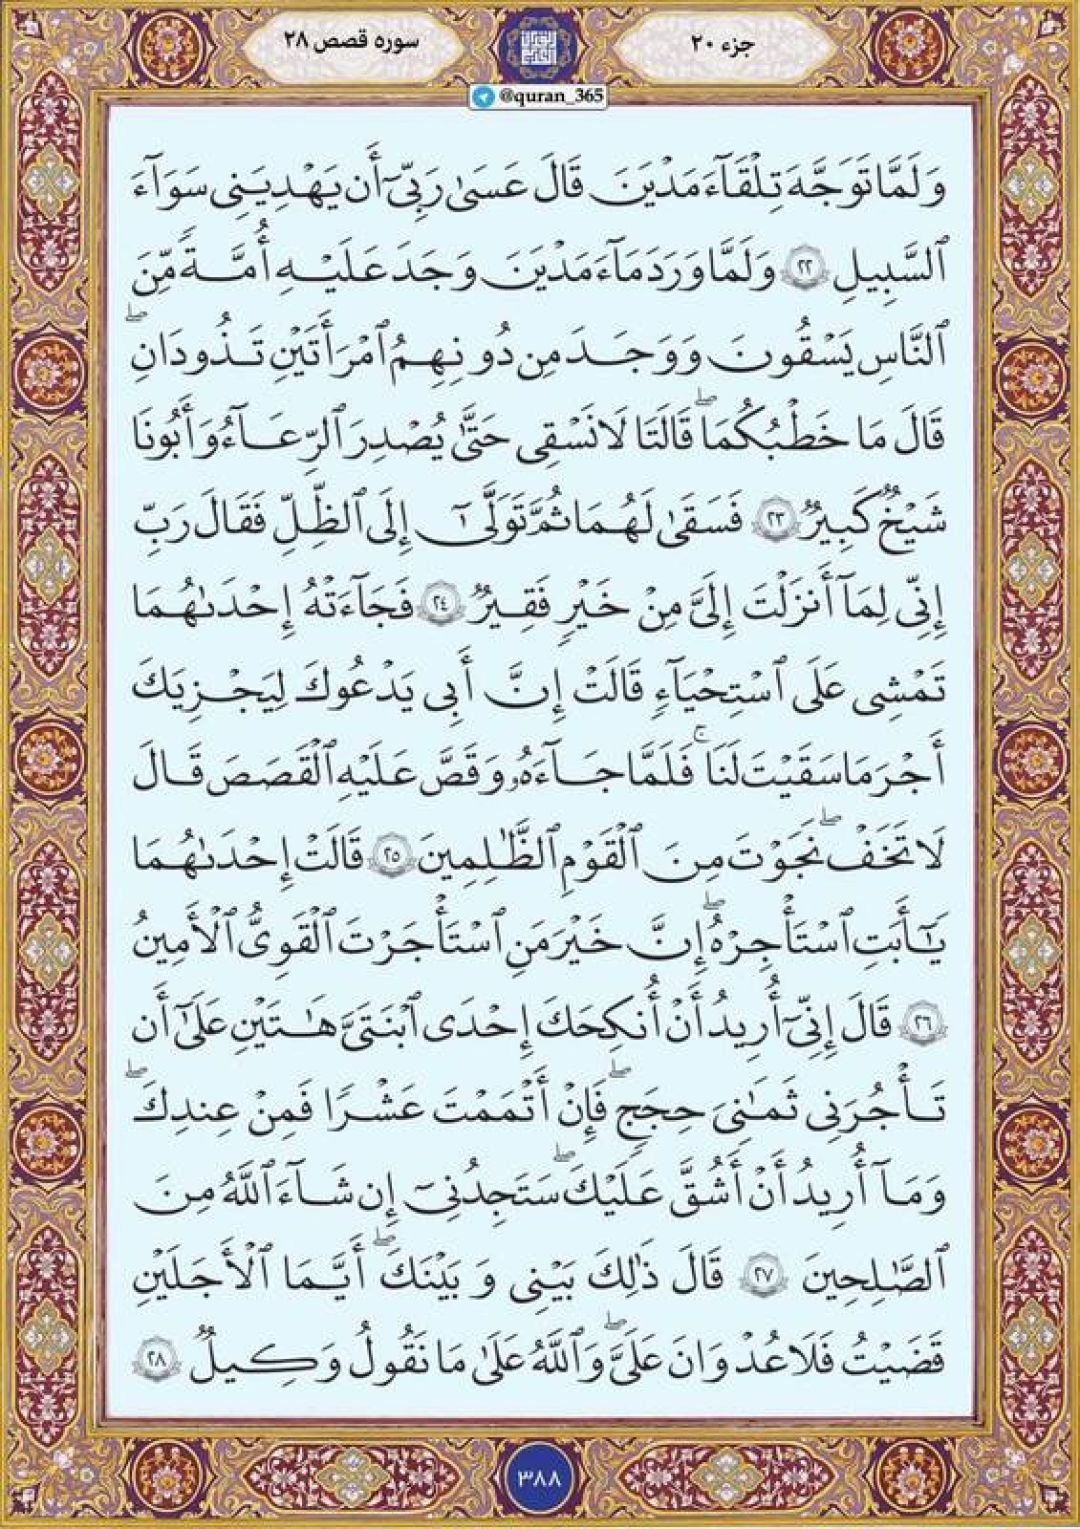 جزء ۲۰
سوره قصص ۲۸
@quran_365
وَلَمَّا تَوَجَّهَ تِلْقَآءَ مَدْيَنَ قَالَ عَسَىٰ رَبِّىٓ أَن يَهْدِيَنِى سَوَآءَ
ٱلسَّبِيلِ ٢٢ وَلَمَّا وَرَدَ مَآءَ مَدْيَنَ وَجَدَ عَلَيْهِ أُمَّةً مِّنَ
ٱلنَّاسِ يَسْقُونَ وَوَجَدَ مِن دُونِهِمُ ٱمْرَأَتَيْنِ تَذُودَانِ ۖ
قَالَ مَا خَطْبُكُمَا ۖ قَالَتَا لَا نَسْقِى حَتَّىٰ يُصْدِرَ ٱلرِّعَآءُ وَأَبُونَا
شَيْخٌ كَبِيرٌ ٢٣ فَسَقَىٰ لَهُمَا ثُمَّ تَوَلَّىٰٓ إِلَى ٱلظِّلِّ فَقَالَ رَبِّ
إِنِّى لِمَآ أَنزَلْتَ إِلَىَّ مِنْ خَيْرٍ فَقِيرٌ ٢٤ فَجَآءَتْهُ إِحْدَىٰهُمَا
تَمْشِى عَلَى ٱسْتِحْيَآءٍ قَالَتْ إِنَّ أَبِى يَدْعُوكَ لِيَجْزِيَكَ
أَجْرَ مَا سَقَيْتَ لَنَا ۚ فَلَمَّا جَآءَهُۥ وَقَصَّ عَلَيْهِ ٱلْقَصَصَ قَالَ
لَا تَخَفْ ۖ نَجَوْتَ مِنَ ٱلْقَوْمِ ٱلظَّٰلِمِينَ ٢٥ قَالَتْ إِحْدَىٰهُمَا
يَٰٓأَبَتِ ٱسْتَـْٔجِرْهُ ۖ إِنَّ خَيْرَ مَنِ ٱسْتَـْٔجَرْتَ ٱلْقَوِىُّ ٱلْأَمِينُ
٢٦ قَالَ إِنِّىٓ أُرِيدُ أَنْ أُنكِحَكَ إِحْدَى ٱبْنَتَىَّ هَٰتَيْنِ عَلَىٰٓ أَن
تَأْجُرَنِى ثَمَٰنِىَ حِجَجٍ ۖ فَإِنْ أَتْمَمْتَ عَشْرًا فَمِنْ عِندِكَ ۖ
وَمَآ أُرِيدُ أَنْ أَشُقَّ عَلَيْكَ ۖ سَتَجِدُنِىٓ إِن شَآءَ ٱللَّهُ مِنَ
ٱلصَّٰلِحِينَ ٢٧ قَالَ ذَٰلِكَ بَيْنِى وَبَيْنَكَ ۖ أَيَّمَا ٱلْأَجَلَيْنِ
قَضَيْتُ فَلَا عُدْوَانَ عَلَىَّ ۖ وَٱللَّهُ عَلَىٰ مَا نَقُولُ وَكِيلٌ ٢٨
٣٨٨